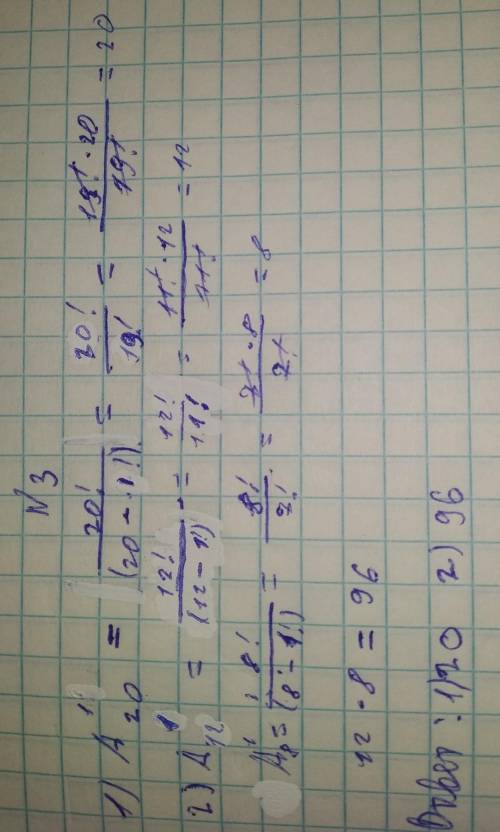 N3
1) A¹₂₀ = 20!/(20-1!) = 20!/19! = 19!·20/19! = 20
2) A¹₁₂ = 12!/(12-1!) = 12!/11! = 11!·12/11! = 12
A¹₈ = 8!/(8-1!) = 8!/7! = 7!·8/7! = 8
12·8=96
Ответ: 1)20 2)96